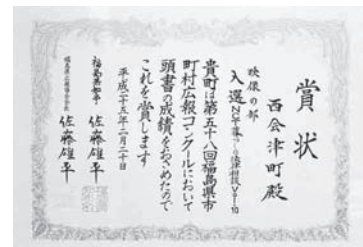 賞状
西会津町殿
映像の部
入選
貴町は第五十八回福島県市
町村広報コンクールにおいて
頭書の成績をおさめたので
これを賞します
平成二十五年二月二十日
福島県知事 佐藤雄平
佐藤雄平